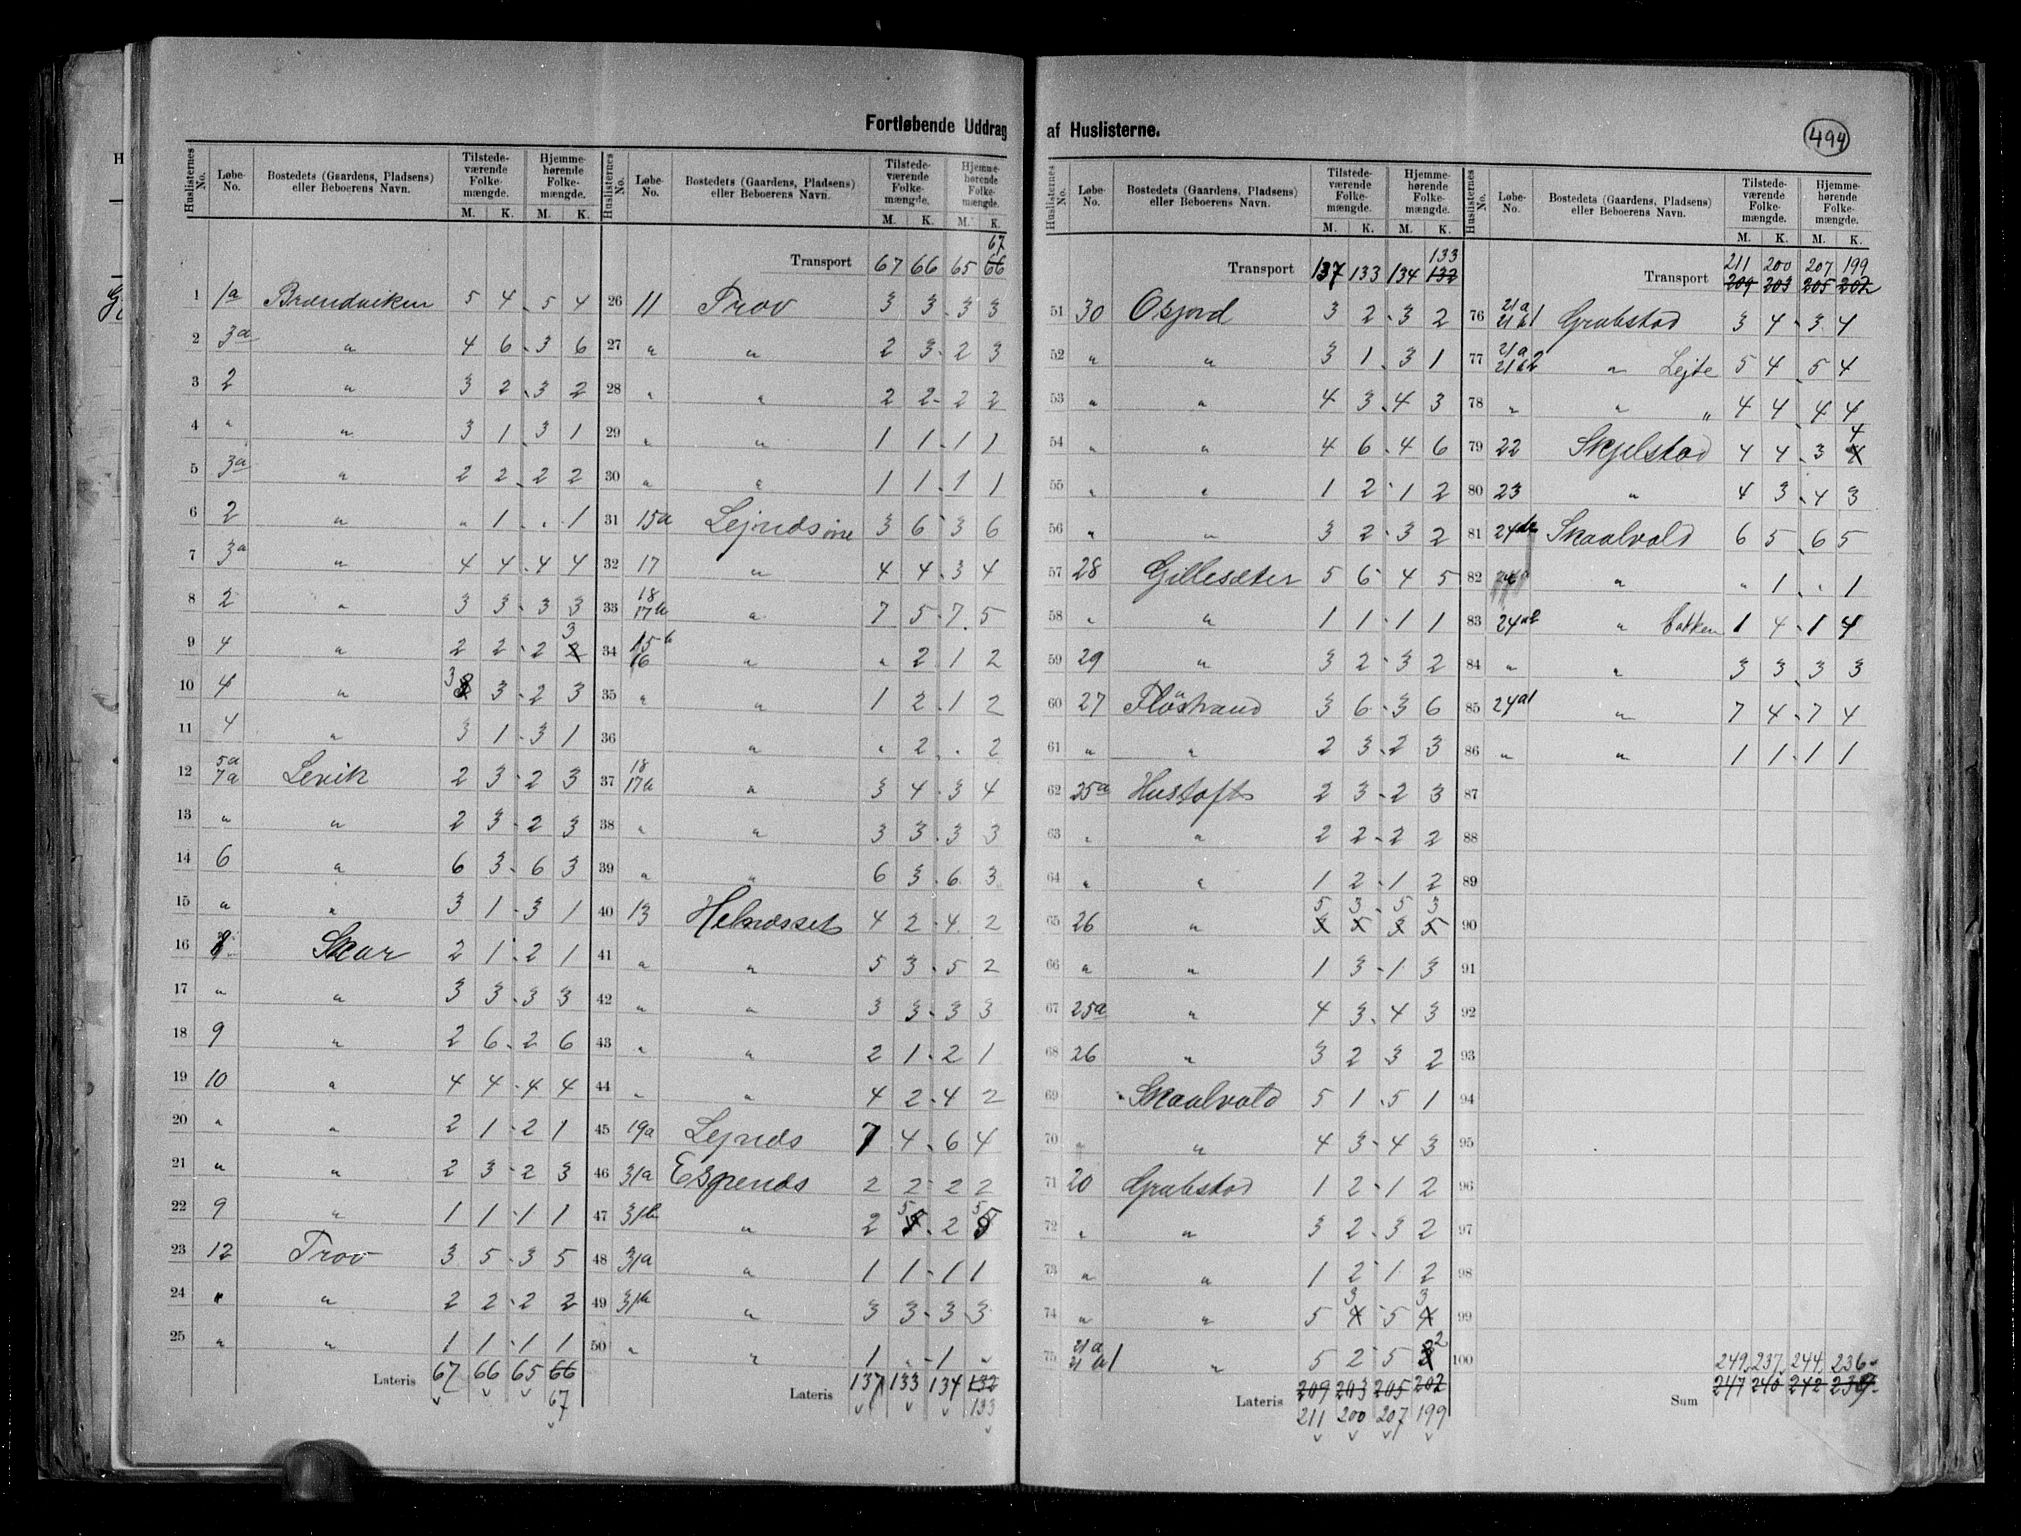 Fortløbende Uddrag af Huslisterne.
494
Huslisternes No. Løbe-No. Bostedets (Gaardens, Pladsens) eller Beboerens Navn. Tilstedeværende Folkemængde. M. K. Hjemmehørende Folkemængde. M. K.
1 1a Brændviken 5 4 - 5 4
2 3a " 4 6 - 3 6
3 2 " 3 2 - 3 2
4 " " 3 1 - 3 1
5 3a " 2 2 - 2 2
6 2 " " 1 - " 1
7 3a " 4 4 - 4 4
8 2 " 3 3 - 3 3
9 4 " 2 2 - 2 3
10 4 " 3 3 - 2 3
11 4 " 3 1 - 3 1
12 5a 7a Levik 2 3 - 2 3
13 " " 2 3 - 2 3
14 6 " 6 3 - 6 3
15 " " 3 1 - 3 1
16 8 Skar 2 1 - 2 1
17 " " 3 3 - 3 3
18 9 " 2 6 - 2 6
19 10 " 4 4 - 4 4
20 " " 2 1 - 2 1
21 " " 2 3 - 2 3
22 9 " 1 1 - 1 1
23 12 Trov 3 5 - 3 5
24 " " 2 2 - 2 2
25 " " 1 1 - 1 1
Lateris 67 66 65 66
67
Huslisternes No. Løbe-No. Bostedets (Gaardens, Pladsens) eller Beboerens Navn. Tilstedeværende Folkemængde. M. K. Hjemmehørende Folkemængde. M. K.
67
Transport 67 66 65 66
26 11 Trov 3 3 - 3 3
27 " " 2 3 - 2 3
28 " " 2 2 - 2 2
29 " " 1 1 - 1 1
30 " " 1 1 - 1 1
31 15a Lejnesøre 3 6 - 3 6
32 17 " 4 4 - 3 4
33 18 17b " 7 5 - 7 5
34 15b 16 " " 2 1 2
35 " " 1 2 - 1 2
36 " " 2 " 2
37 18 17b " 3 4 - 3 4
38 " " 3 3 - 3 3
39 " " 6 3 - 6 3
40 13 Helnæsset 4 2 - 4 2
41 " " 5 3 - 5 2
42 " " 3 3 - 3 3
43 " " 2 1 - 2 1
44 " " 4 2 - 4 2
45 19a Lejnes 7 4 - 6 4
46 31a Espenes 2 2 - 2 2
47 31b " 2 5 - 2 5
48 31a " 1 1 - 1 1
49 31b " 3 3 - 3 3
50 " " 1 " - 1 "
Lateris 137 133 134 132
133
Huslisternes No. Løbe-No. Bostedets (Gaardens, Pladsens) eller Beboerens Navn. Tilstedeværende Folkemængde. M. K. Hjemmehørende Folkemængde. M. K.
133
Transport 137 133 134 132
51 30 Osjord 3 2 - 3 2
52 " " 3 1 - 3 1
53 " " 4 3 - 4 3
54 " " 4 6 - 4 6
55 " " 1 2 - 1 2
56 " " 3 2 - 3 2
57 28 Gillesæter 5 6 4 5
58 " " 1 1 - 1 1
59 29 " 3 2 - 3 2
60 27 Fløstrand 3 6 - 3 6
61 " " 2 3 - 2 3
62 25a Hustoft 2 3 - 2 3
63 " " 2 2 - 2 2
64 " " 1 2 - 1 2
5 3 - 5 3
65 26 " 3 5 3 5
66 " " 1 3 - 1 3
67 25a " 4 3 - 4 3
68 26 " 3 2 3 2
69 Skaalvold 5 1 - 5 1
70 " " 4 3 - 4 3
71 20 Grubstad 1 2 - 1 2
72 " " 3 2 - 3 2
73 " " 1 2 - 1 2
3 3
74 " " 5 4 - 5 4
75 21a 21b1 " 5 2 5 2
Lateris 209 203 205 202
211 200 207 199
Huslisternes No. Løbe-No. Bostedets (Gaardens, Pladsens) eller Beboerens Navn. Tilstedeværende Folkemængde. M. K. Hjemmehørende Folkemængde. M. K.
211 200 207 199
Transport 209 203 205 202
76 21a 21b1 Grubstad 3 4 - 3 4
77 21a 21b2 " Lejte 5 4 - 5 4
78 " " " 4 4 - 4 4
79 22 Skjelstad 4 4 - 3 4
80 23 " 4 3 - 4 3
81 Skaalvold 6 5 - 6 5
82 " " 1 " 1
83 " bakken 1 4 - 1 4
84 " " 3 3 3 3
85 24a1 " 7 4 - 7 4
86 " " 1 1 - 1 1
87
88
89
90
91
92
93
94
95
96
97
98
99
100
249 237 244 236
Sum 247 240 242 239